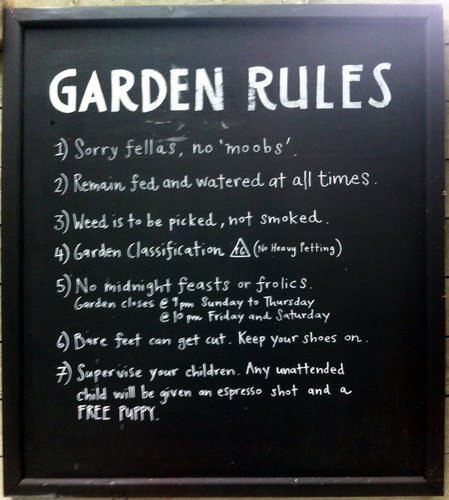 GARDEN RULES
1) Sorry fellas, no 'moobs'.
2) Remain fed and watered at all times.
3) Weed is to be picked, not smoked.
4) Garden Classification PG (No Heavy Petting)
5) No midnight feasts or frolics.
Garden closes @ 9pm Sunday to Thursday
@ 10pm Friday and Saturday
6) Bare feet can get cut. Keep your shoes on.
7) Supervise your children. Any unattended
child will be given an espresso shot and a
FREE PUPPY.